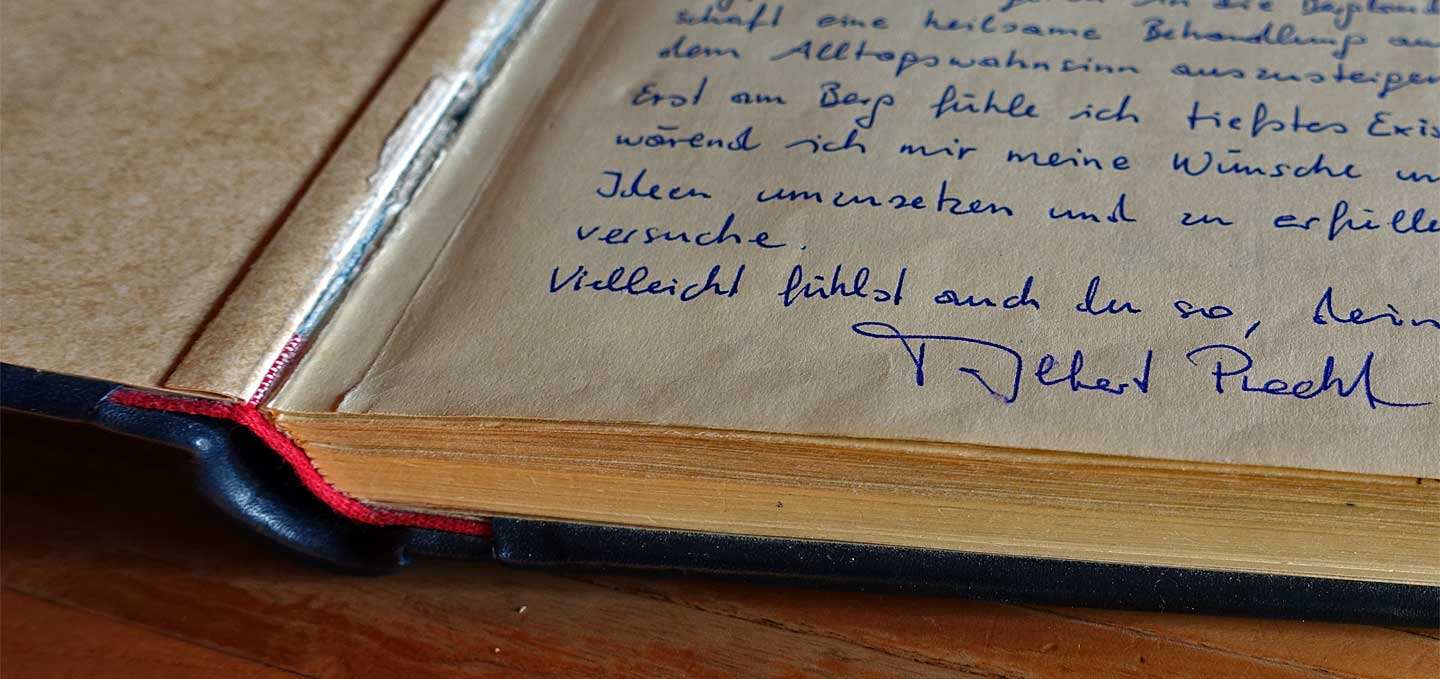 in die Bergland
schaft eine heilsame Behandlung
dem Alltagswahnsinn auszusteigen
Erst am Berg fühle ich tiefstes Exis
wärend ich mir meine Wünsche un
Ideen umzusetzen und zu erfülle
versuche.
Vielleicht fühlst auch du so, dein
Albert Precht